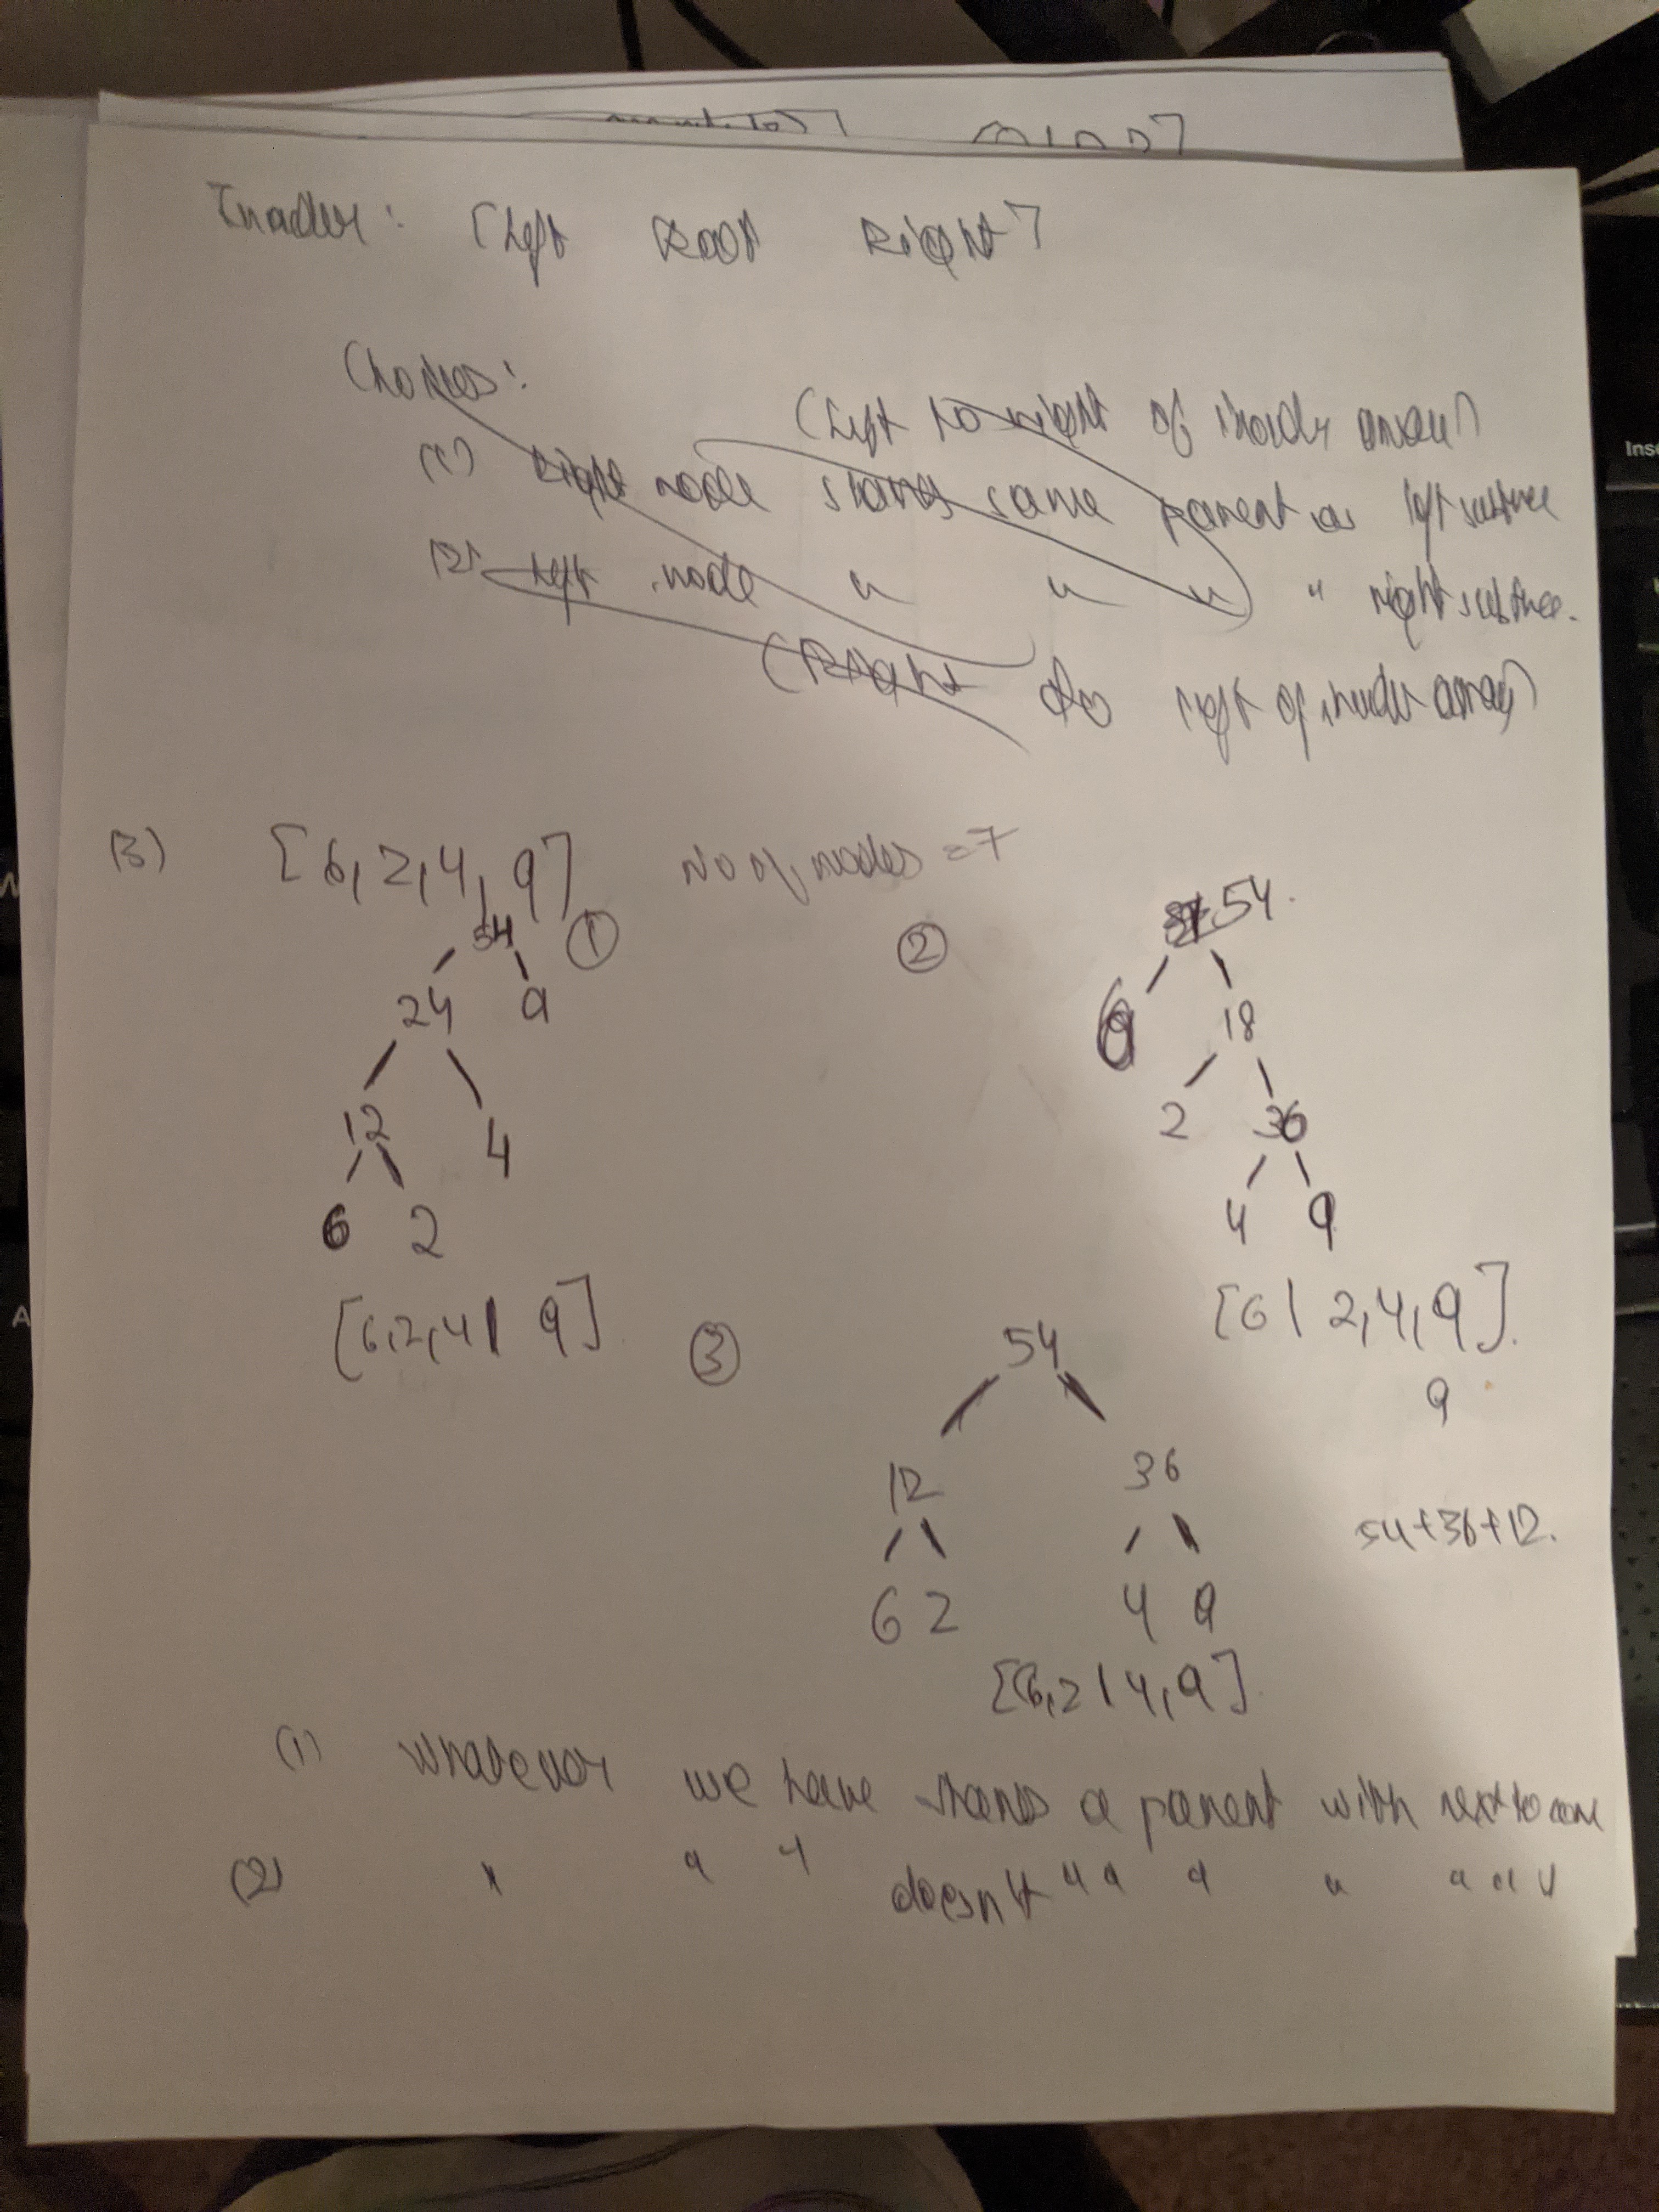 Inorder: [Left Root Right]
Choices:
(Left to right of inorder array)
(1) Right node shares same parent as left subtree
(2) Left node " " " " right subtree.
(Right to left of inorder array)
(3) [6, 2, 4, 9] No of nodes = 7
54 ① ② 54.
24 9 6 18
12 4 2 36
6 2 4 9
[6,2,4 | 9] [6 | 2,4,9].
③ 54 9
12 36
54+36+12.
6 2 4 9
[6,2 | 4,9].
(1) Whatever we have shares a parent with next to come
(2) " " " doesn't " " " " " " "